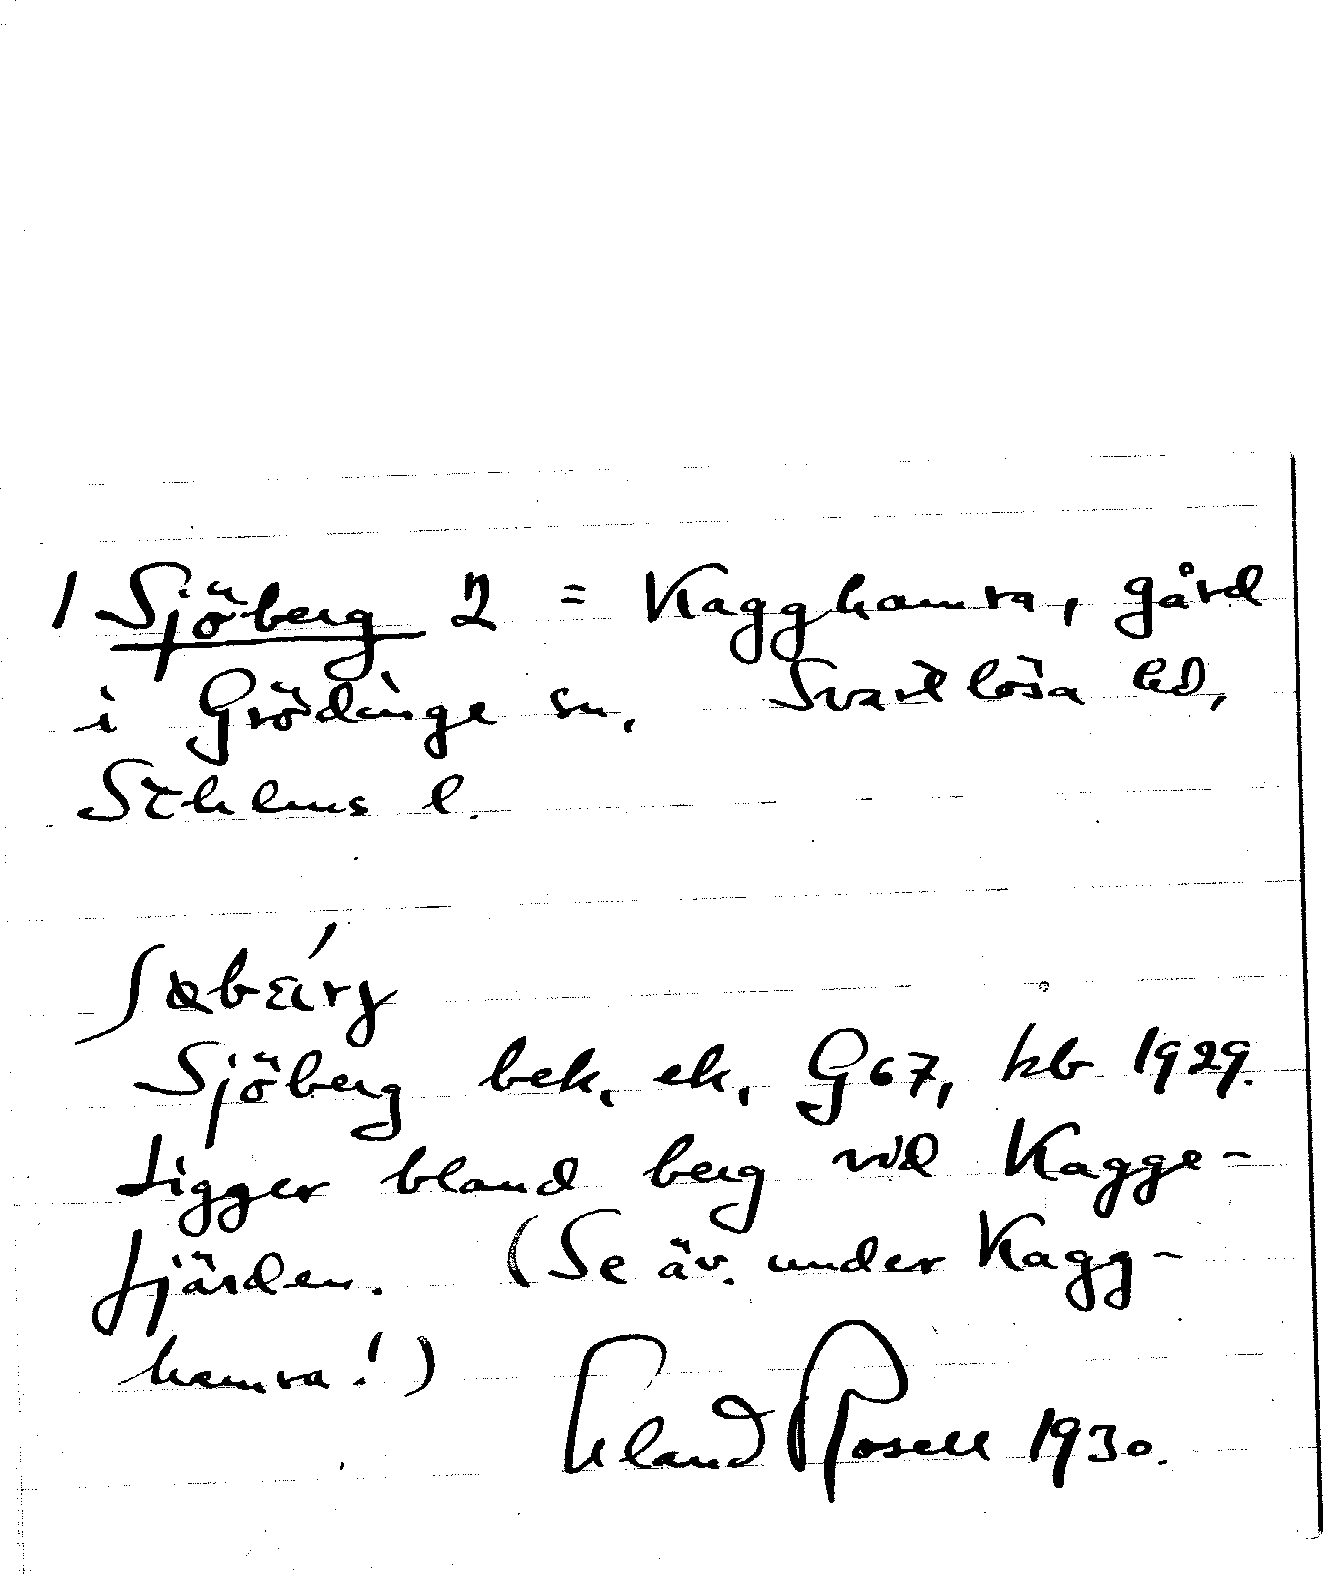 / Sjöberg 2 = Kagghamra, gård
i Grödinge sn. Svartlösa hd,
Sthlms l.
Sjöberg bek. ek. G67, kb 1929.
Ligger bland berg vid Kagge-
fjärden. (Se äv. under Kagg-
hamra!)
Erland Rosell 1930.